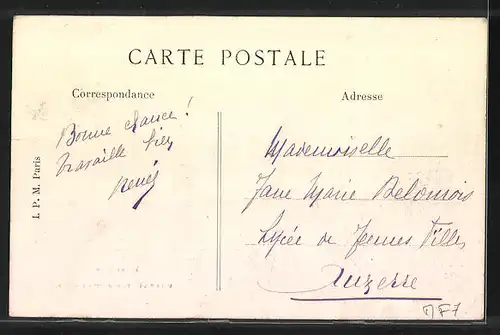 CARTE POSTALE
Correspondance
Adresse
Bonne chance !
Travaille bien
René
I. P. M. Paris
Mademoiselle
Jane Marie
Lycée de Jeunes Filles
Auxerre
F7